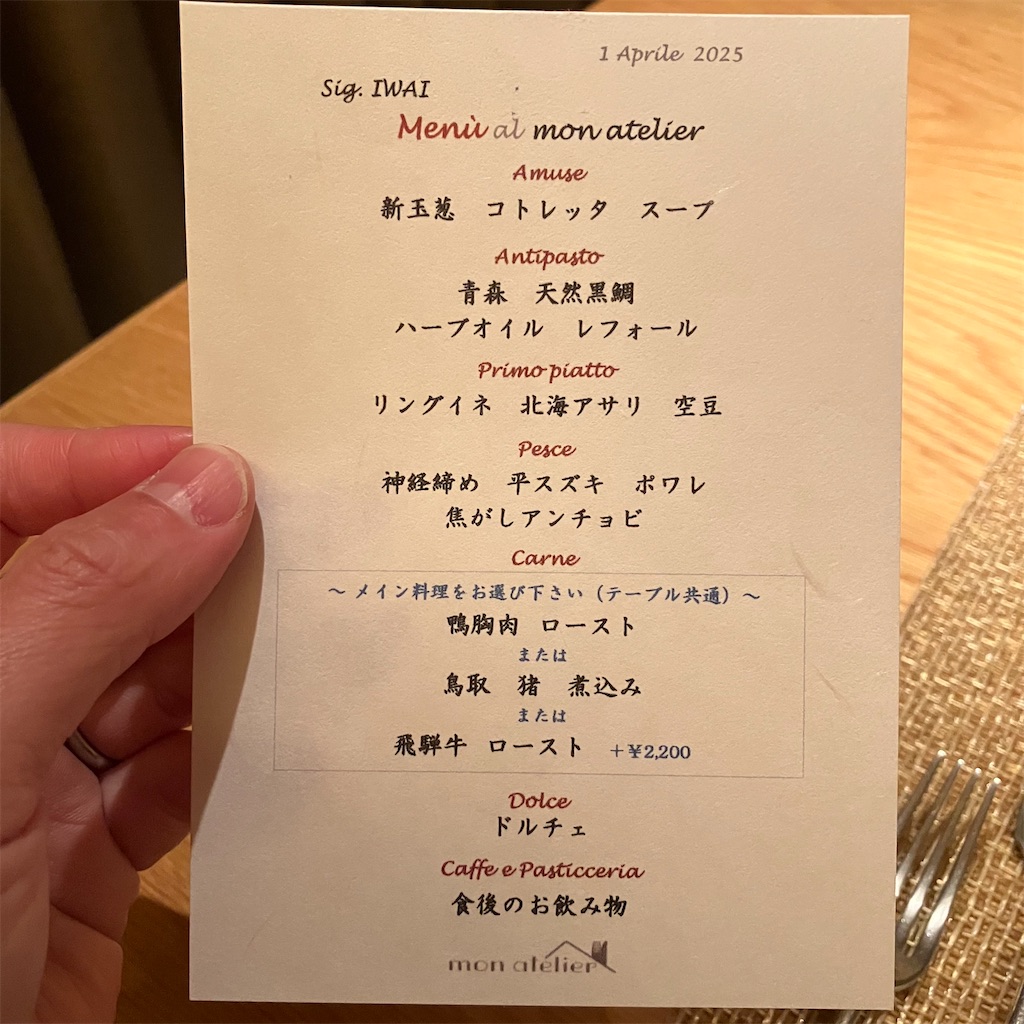 1 Aprile 2025
Sig. IWAI
Menù al mon atelier
Amuse
新玉葱　コトレッタ　スープ
Antipasto
青森　天然黒鯛
ハーブオイル　レフォール
Primo piatto
リングイネ　北海アサリ　空豆
Pesce
神経締め　平スズキ　ポワレ
焦がしアンチョビ
Carne
～ メイン料理をお選び下さい（テーブル共通）～
鴨胸肉　ロースト
または
鳥取　猪　煮込み
または
飛騨牛　ロースト　+¥2,200
Dolce
ドルチェ
Caffe e Pasticceria
食後のお飲み物
mon atelier